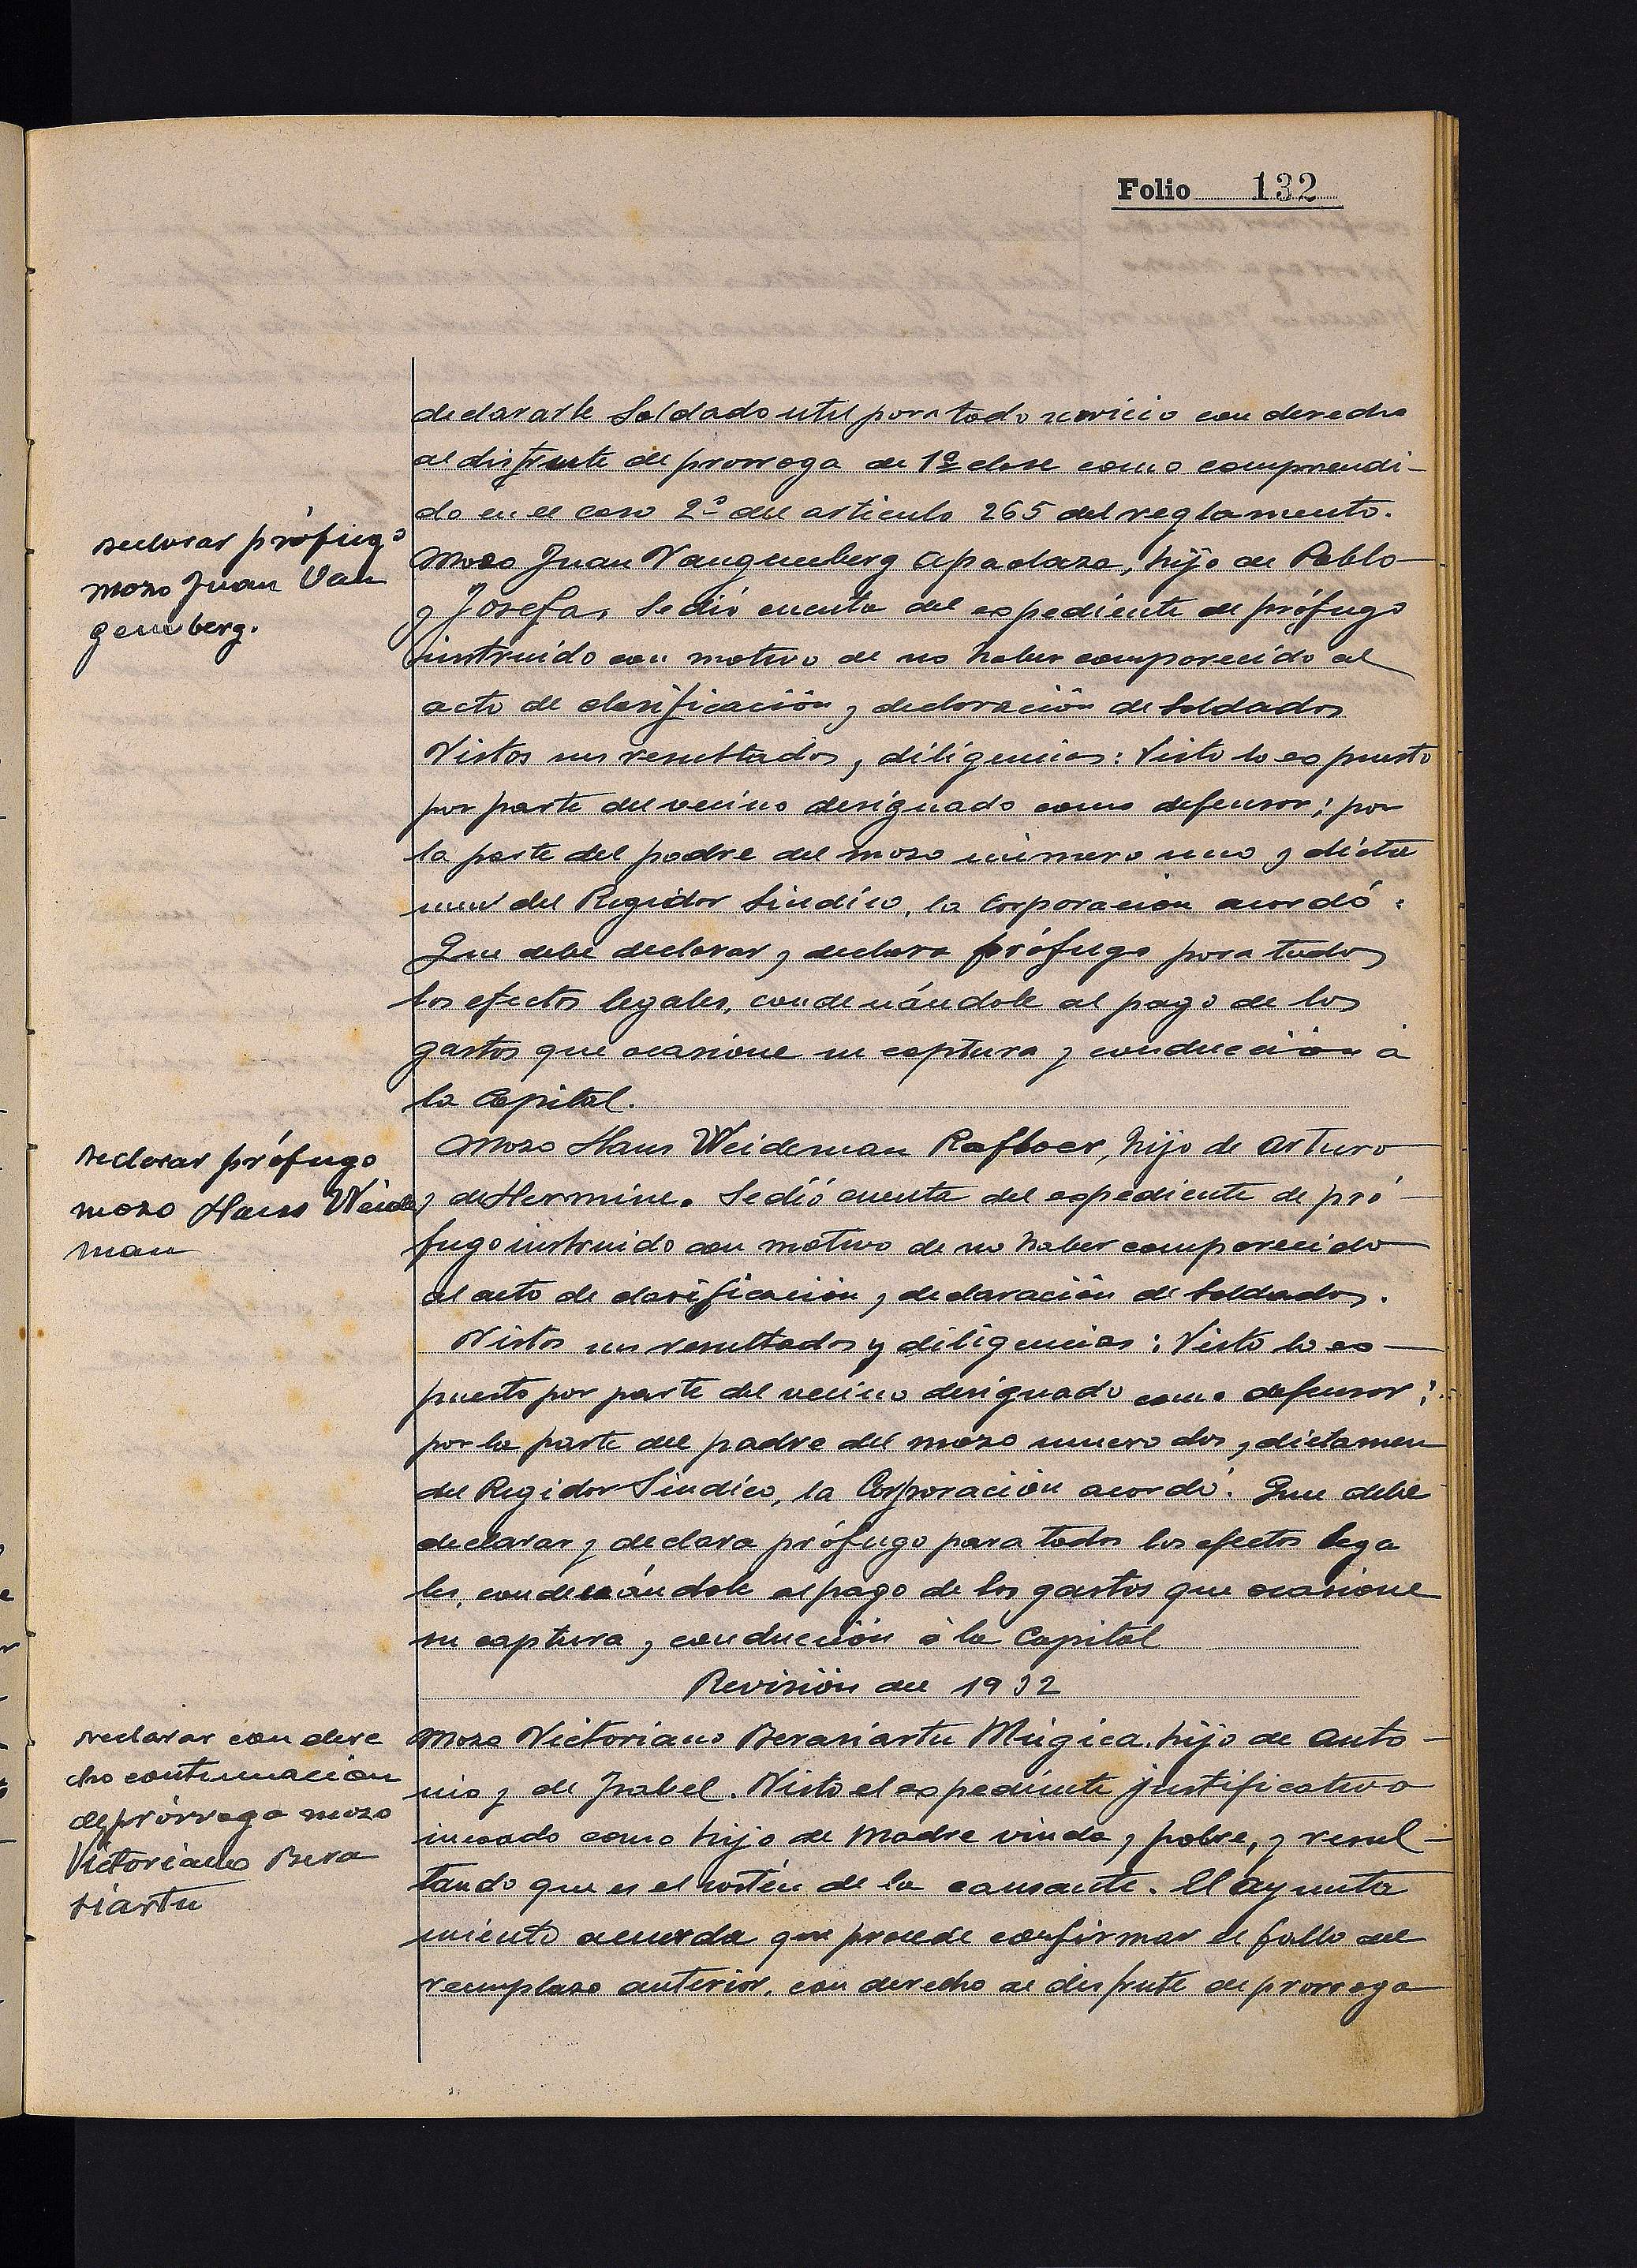 Folio 132
declararle Soldado util para todo servicio con derecho
al disfrute de prorroga de 1ª clase como comprendi-
do en el caso 2º del articulo 265 del reglamento.
Declarar prófugo
mozo Juan Van
gemberg.
Mozo Juan Vangemberg Apaolaza, hijo de Pablo
y Josefa, Se dió cuenta del expediente de prófugo
instruido con motivo de no haber comparecido al
acto de clasificación y declaración de Soldados
Vistos sus resultados y diligencias: Visto lo expuesto
por parte del vecino designado como defensor; por
la parte del padre del mozo número uno y dicta
men del Regidor Sindico, la Corporacion acordó:
Que debe declarar y declara prófugo para todos
los efectos legales, condenándole al pago de los
gastos que ocasione su captura y conducción á
la Capital.
Declarar prófugo
mozo Hans Weide
man
Mozo Hans Weideman Rafloer, hijo de Arturo
y de Hermine. Se dió cuenta del expediente de pró-
fugo instruido con motivo de no haber comparecido
al acto de clasificación y declaración de Soldados.
Vistos sus resultados y diligencias: Visto lo ex-
puesto por parte del vecino designado como defensor;
por la parte del padre del mozo numero dos y dictamen
del Regidor Sindico, la Corporación acordó: Que debe
declarar y declara prófugo para todos los efectos lega
les, condenándole al pago de los gastos que ocasione
su captura y conducción á la Capital
Revisión de 1932
Declarar con dere
cho continuación
de prórroga mozo
Victoriano Bera
siartu
Mozo Victoriano Berasiartu Múgica, hijo de Anto-
nio y de Isabel. Visto el expediente justificativo
incoado como hijo de Madre viuda y pobre, y resul-
tando que es el sostén de la causante. El Ayunta
miento acuerda que procede confirmar el fallo del
reemplazo anterior, con derecho al disfrute de prorroga